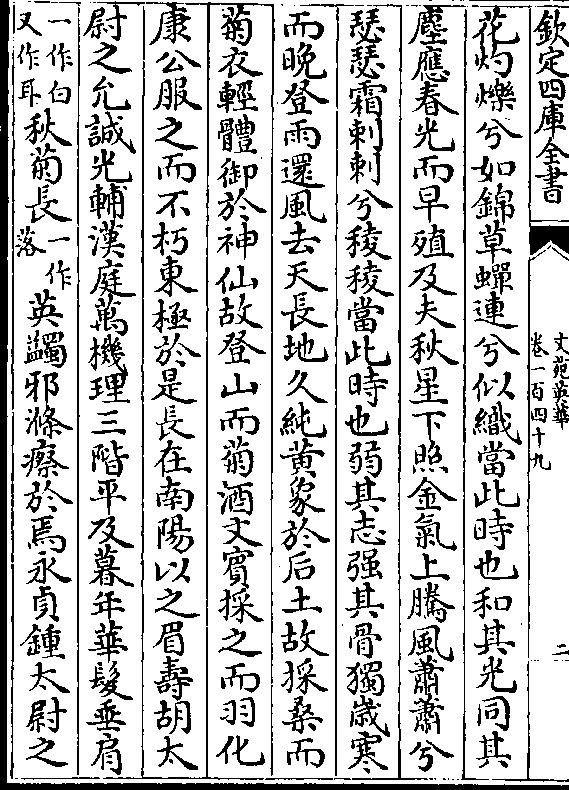 欽定四庫全書
文苑英華
卷一百四十九
二
花灼爍兮如錦草蟬連兮似織當此時也和其光同其
塵應春光而早殖及夫秋星下照金氣上騰風蕭蕭兮
瑟瑟霜刺刺兮稜稜當此時也弱其志强其骨獨歲寒
而晚登雨還風去天長地久純黄象於后土故採桑而
菊衣輕體御於神仙故登山而菊酒文賓採之而羽化
康公服之而不朽東極於是長在南陽以之眉壽胡太
尉之允誠光輔漢庭萬機理三階平及暮年華髮垂肩
一作白
又作耳
秋菊長
一作
落
英蠲邪滌瘵於焉永貞鍾太尉之